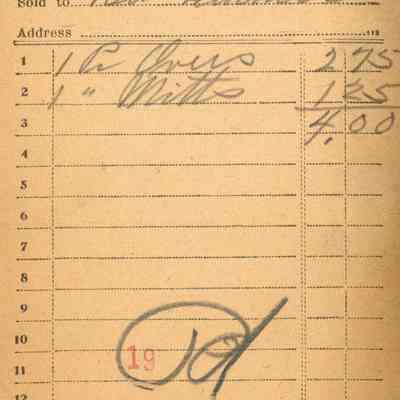 Sold to
Address
1 1 Pr Overs 2 75
2 1 " Mitts 1 25
3 4.00
4
5
6
7
8
9
10
19 Pd
11
12